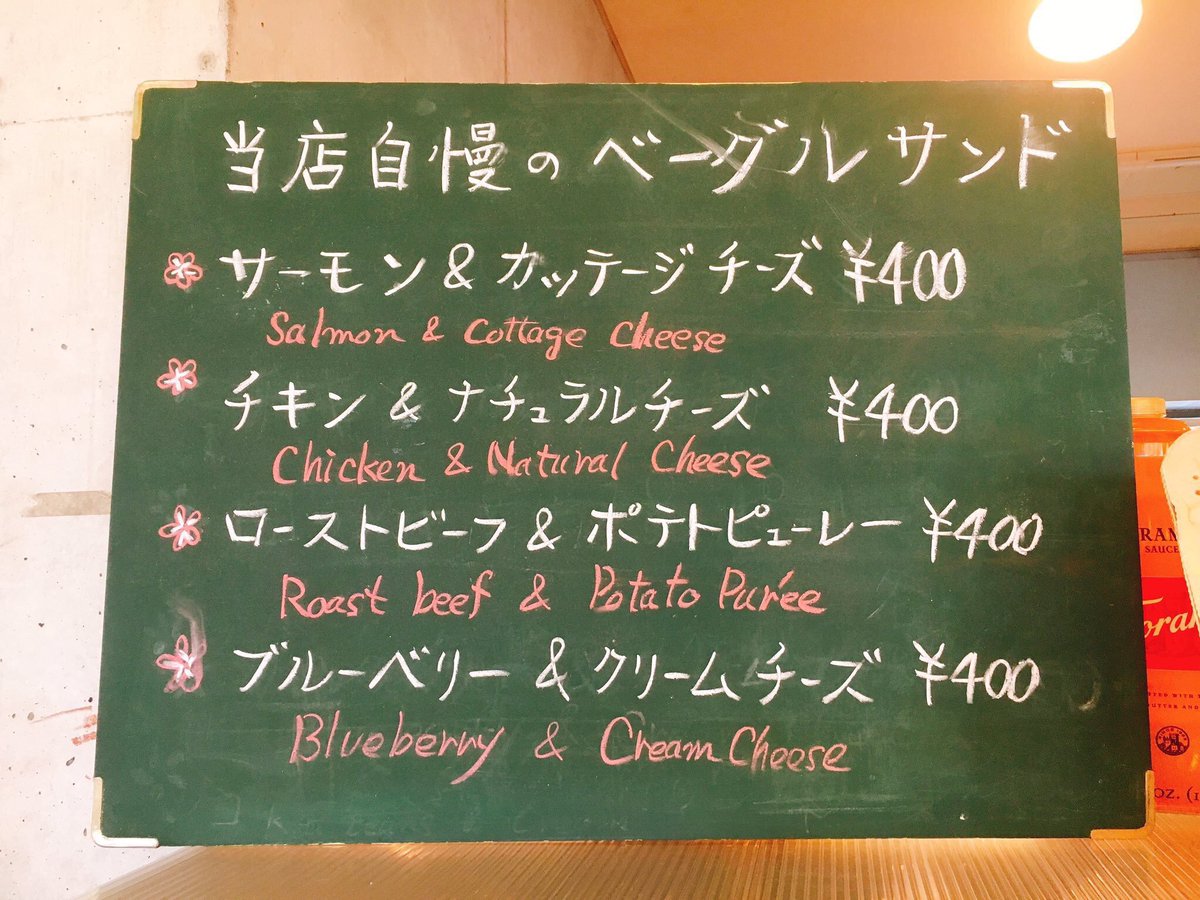 当店自慢のベーグルサンド
サーモン&カッテージチーズ ¥400
Salmon & Cottage Cheese
チキン&ナチュラルチーズ ¥400
Chicken & Natural Cheese
ローストビーフ&ポテトピューレー ¥400
Roast beef & Potato Purée
ブルーベリー&クリームチーズ ¥400
Blueberry & Cream Cheese
SAUCE
OZ.